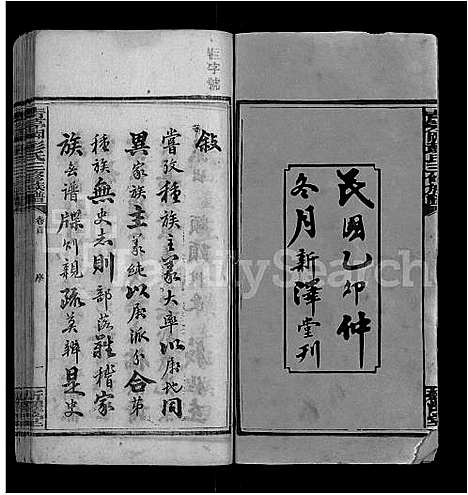 民國乙卯仲
冬月新澤堂刊
敘
嘗攷種族主義大率以居地同
異家族主義純以居派分合第
種族無史志則部落難稽家
族無譜牒則親疏莫辨是史
卷首
序
一
FamilySearch